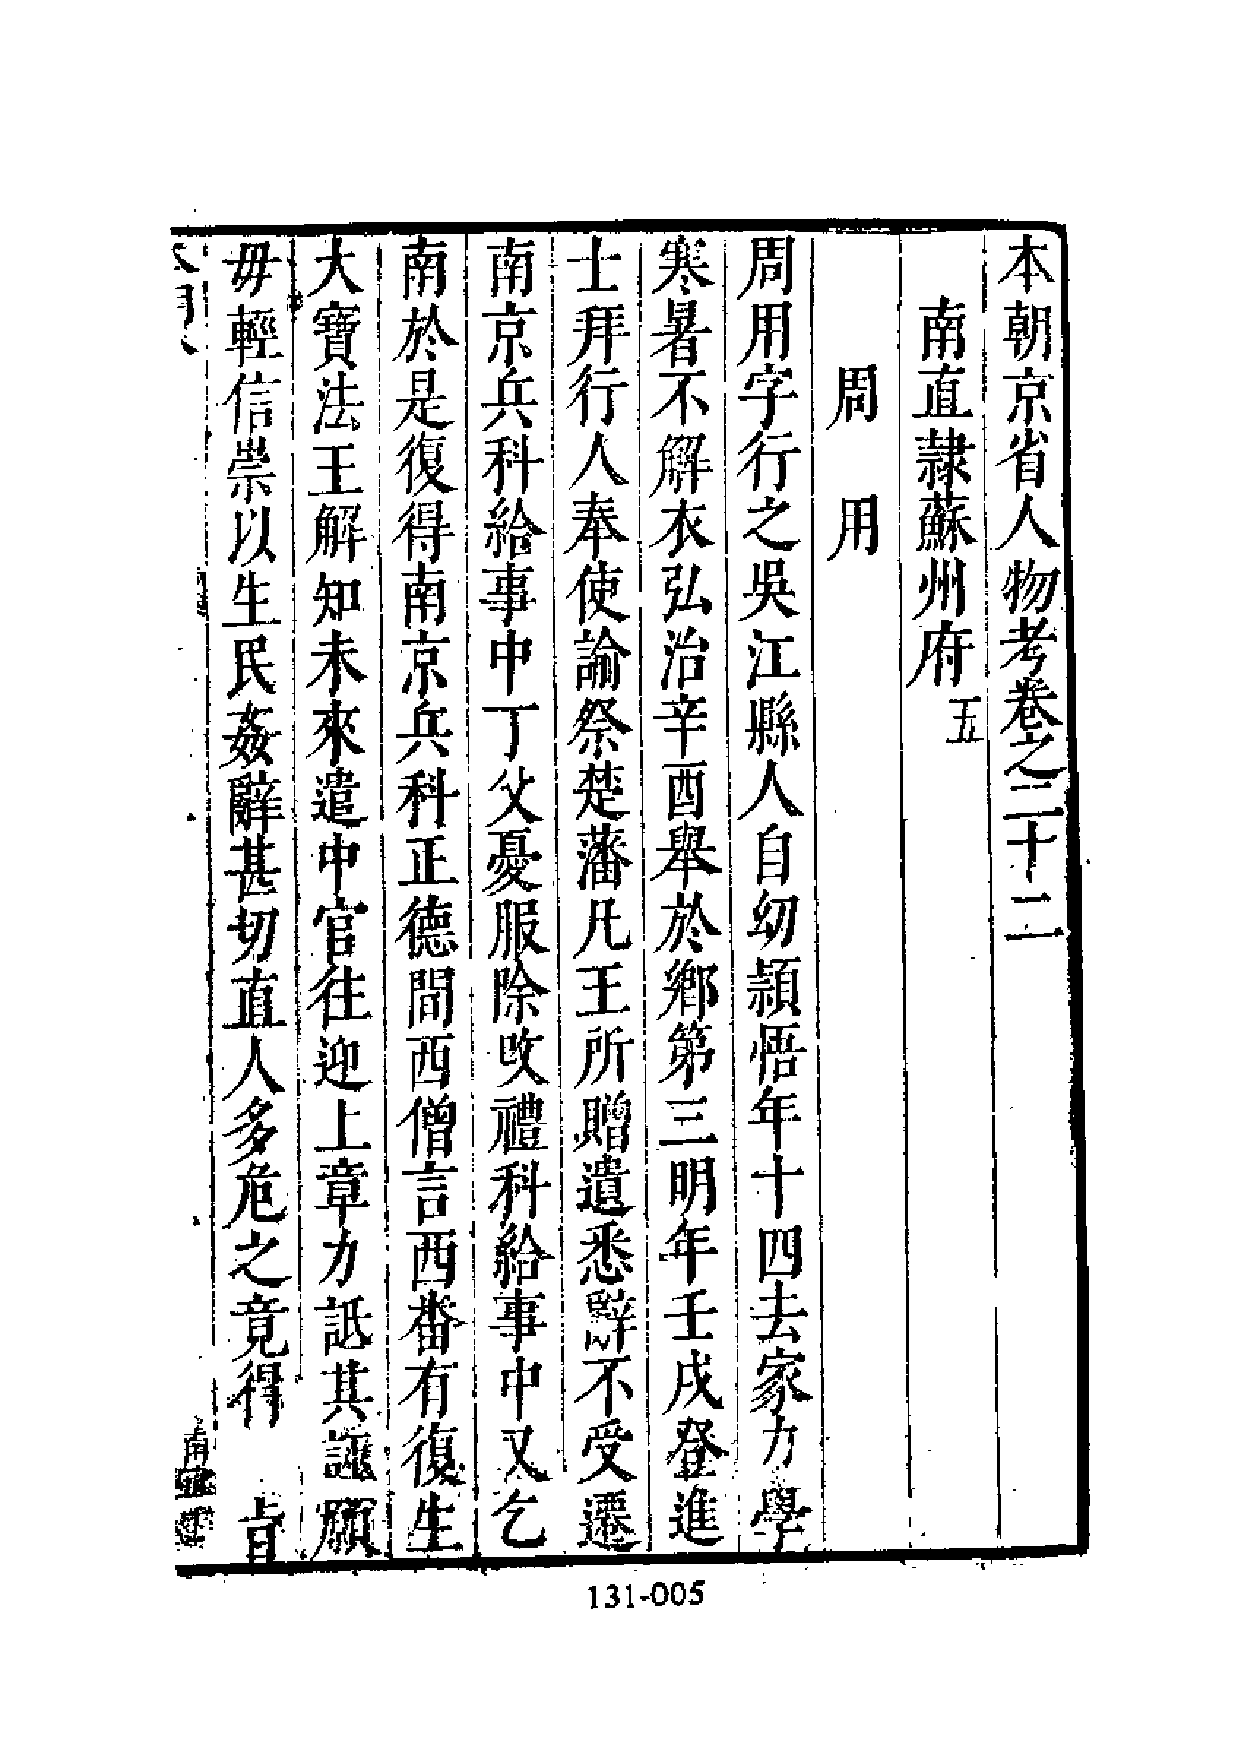 本朝京省人物考卷之二十二
南直隷蘇州府五
周用
周用字行之吳江縣人自幼頴悟年十四去家力學
寒暑不解衣弘治辛酉舉於鄉第三明年壬戌登進
士拜行人奉使諭祭楚藩凡王所贈遺悉辭不受遷
南京兵科給事中丁父憂服除改禮科給事中又乞
南於是復得南京兵科正德間西僧言西番有復生
大寶法王解知未來遣中官往迎上章力詆其誣願
毋輕信崇以生民姦辭甚切直人多危之竟得 旨
131-005